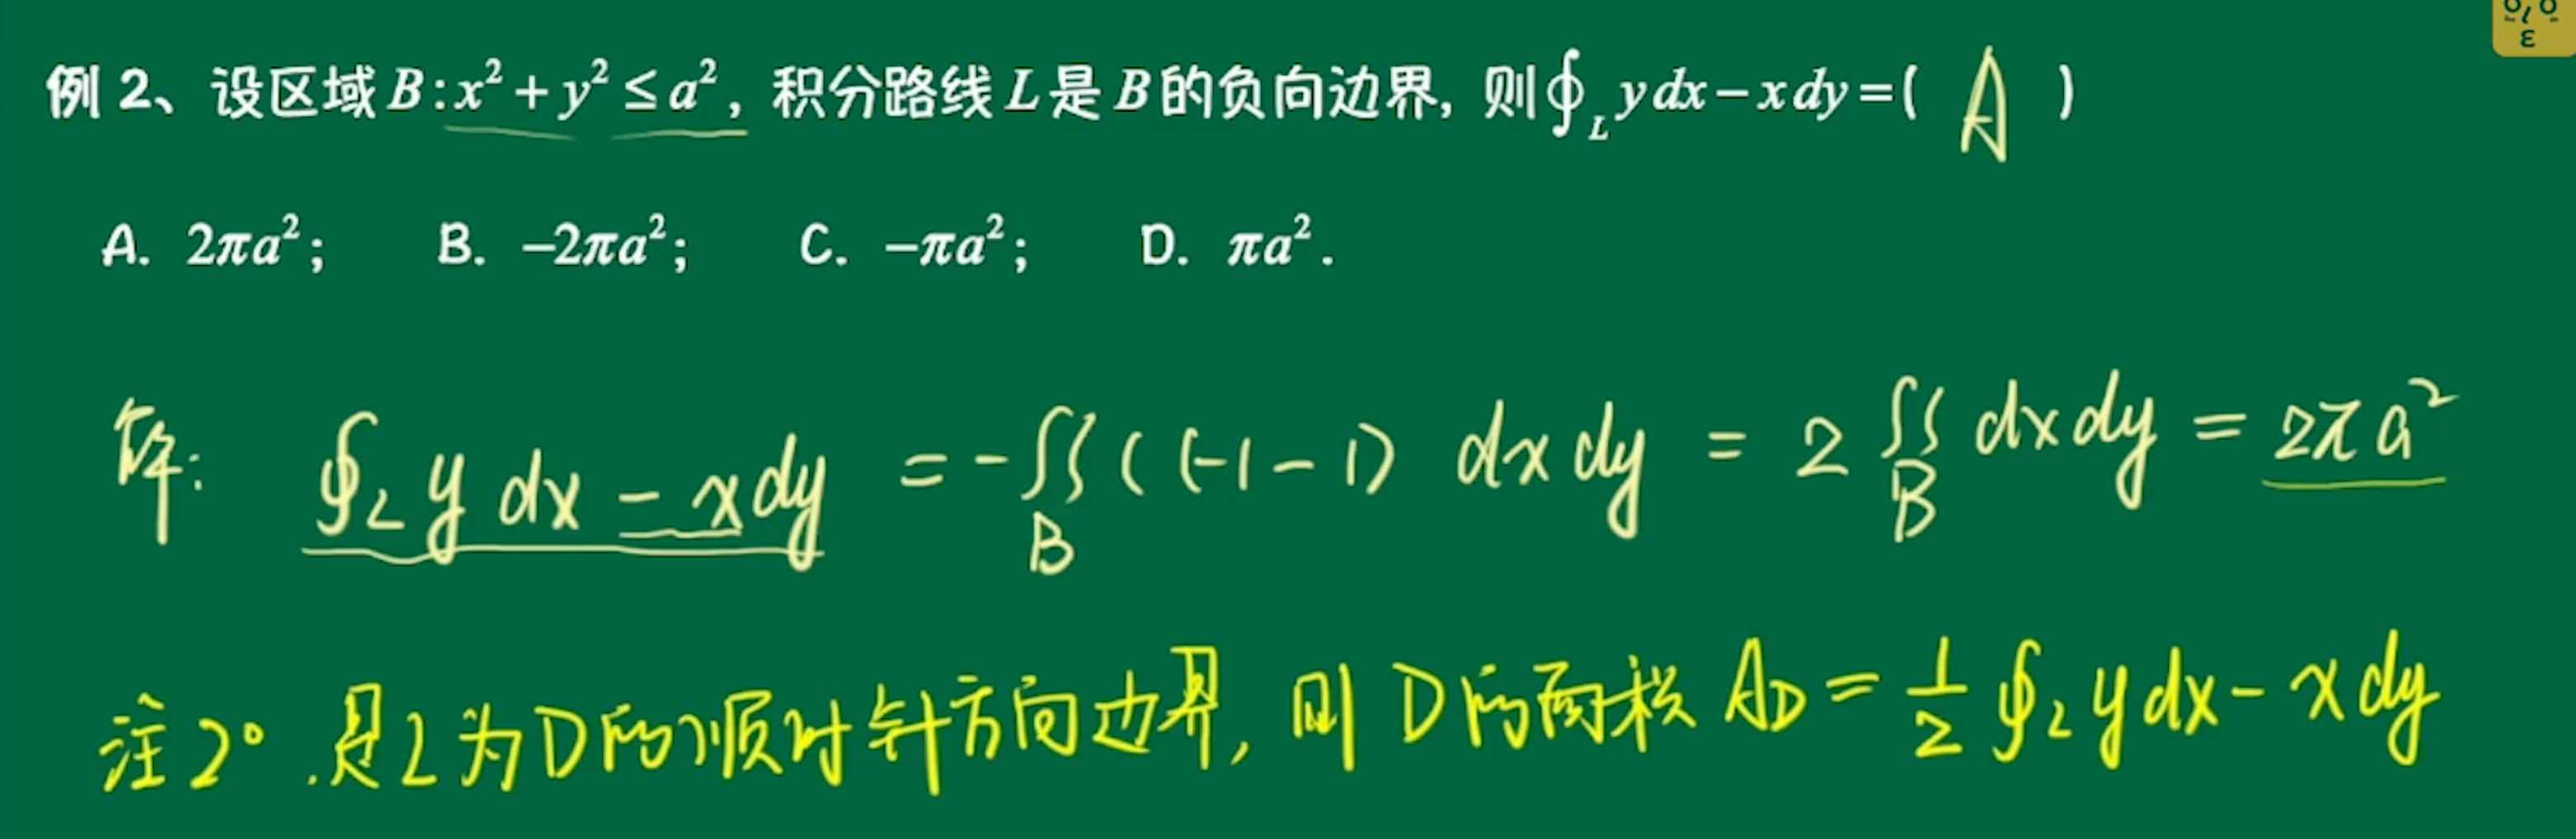 例2、设区域B:x²+y²≤a²，积分路线L是B的负向边界，则∮_L ydx−xdy=( A )
A. 2πa²; B. −2πa²; C. −πa²; D. πa².
解: ∮_L y dx − xdy = −∬_B (-1-1) dxdy = 2∬_B dxdy = 2πa²
注2° 是L为D的顺时针方向边界, 则D的面积 A_D = 1/2 ∮_L ydx − xdy